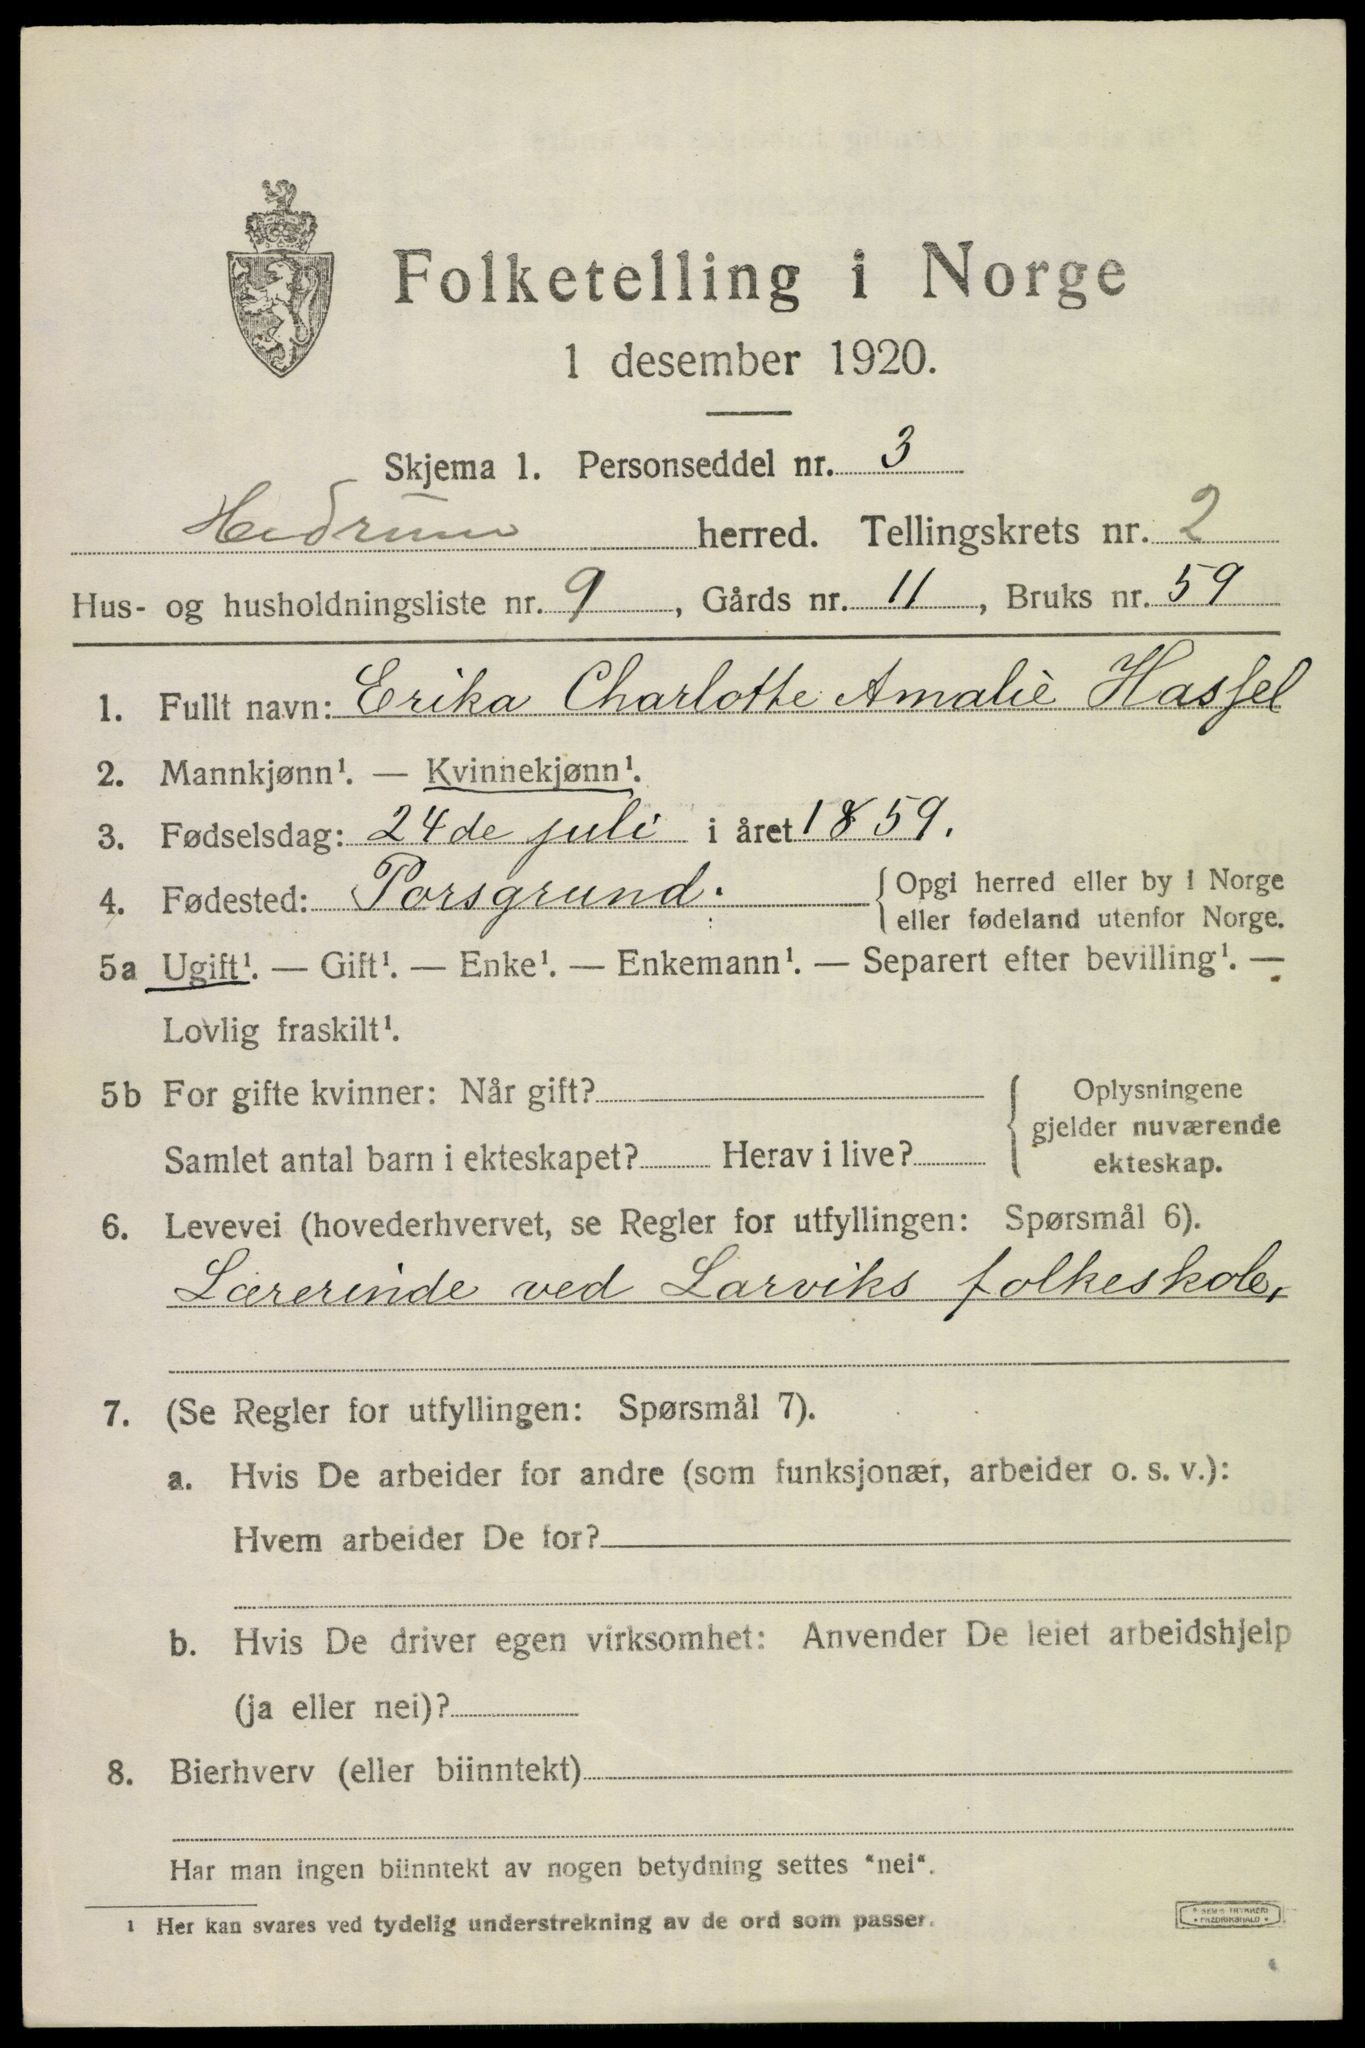 Folketelling i Norge
1 desember 1920.
Skjema 1. Personseddel nr. 3
Hedrum herred. Tellingskrets nr. 2
Hus- og husholdningsliste nr. 9, Gårds nr. 11, Bruks nr. 59
1. Fullt navn: Erika Charlotte Amalie Hassel
2. Mannkjønn¹. — Kvinnekjønn¹.
3. Fødselsdag: 24de juli i året 1859.
4. Fødested: Porsgrund. {Opgi herred eller by i Norge
eller fødeland utenfor Norge.
5a Ugift¹. — Gift¹. — Enke¹. — Enkemann¹. — Separert efter bevilling¹. —
Lovlig fraskilt¹.
5b For gifte kvinner: Når gift?
Samlet antal barn i ekteskapet? Herav i live?
Oplysningene
gjelder nuværende
ekteskap.
6. Levevei (hovederhvervet, se Regler for utfyllingen: Spørsmål 6).
Lærerinde ved Larviks folkeskole,
7. (Se Regler for utfyllingen: Spørsmål 7).
a. Hvis De arbeider for andre (som funksjonær, arbeider o. s. v.):
Hvem arbeider De for?
b. Hvis De driver egen virksomhet: Anvender De leiet arbeidshjelp
(ja eller nei)?
8. Bierhverv (eller biinntekt)
Har man ingen biinntekt av nogen betydning settes "nei".
¹ Her kan svares ved tydelig understrekning av de ord som passer.
SEM'S TRYKKERI
FREDRIKSHALD